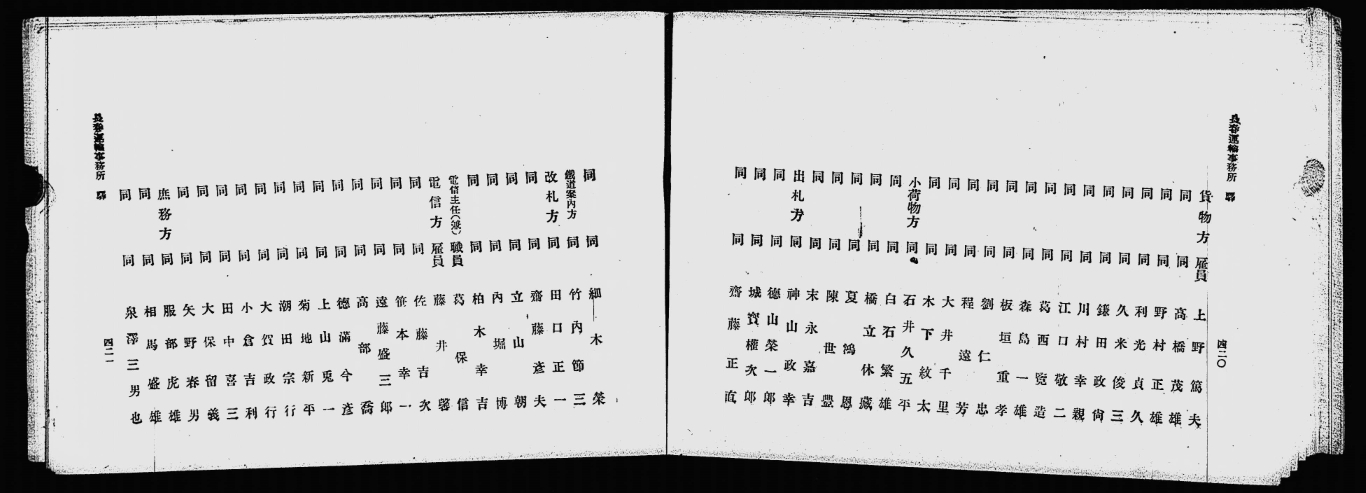 長春運輸事務所
貨物方 雇員 上野篤夫
同 同 高橋茂雄
同 同 野村正雄
同 同 利光貞久
同 同 久米俊三
同 同 鎌田政尙
同 同 川村幸親
同 同 江口敬二
同 同 葛西覽造
同 同 森島一雄
同 同 板垣重孝
同 同 劉仁忠
同 同 程遠芳
同 同 大井千里
同 同 木下紋太
小荷物方 同 石井久五平
同 同 白石繁雄
同 同 橋立休藏
同 同 夏鴻恩
同 同 陳世豐
同 同 末永嘉吉
出札方 同 神山政幸
同 同 德山榮一郎
同 同 城寶權次郎
同 同 齋藤正直
四二〇
同 同 細木榮
鐵道案內方 同 竹內節三
改札方 同 田口正一
同 同 齋藤彥夫
同 同 立山朝
同 同 內堀博
同 同 柏木幸吉
電信主任(派) 職員 葛保信
電信方 雇員 藤井馨
同 同 佐藤吉次
同 同 笹本幸一
同 同 遠藤盛三郎
同 同 高部喬
同 同 德滿今彥
同 同 上山兎一
同 同 菊地新平
同 同 潮田宗行
同 同 大賀政行
同 同 小倉吉利
同 同 田中喜三
同 同 大保留義
同 同 矢野春男
庶務方 同 服部虎雄
同 同 相馬盛雄
同 同 泉澤三男也
長春運輸事務所
四二一